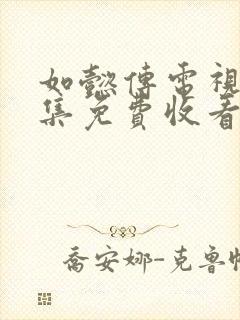 如懿傳電視
集免費收看
喬安娜-克魯